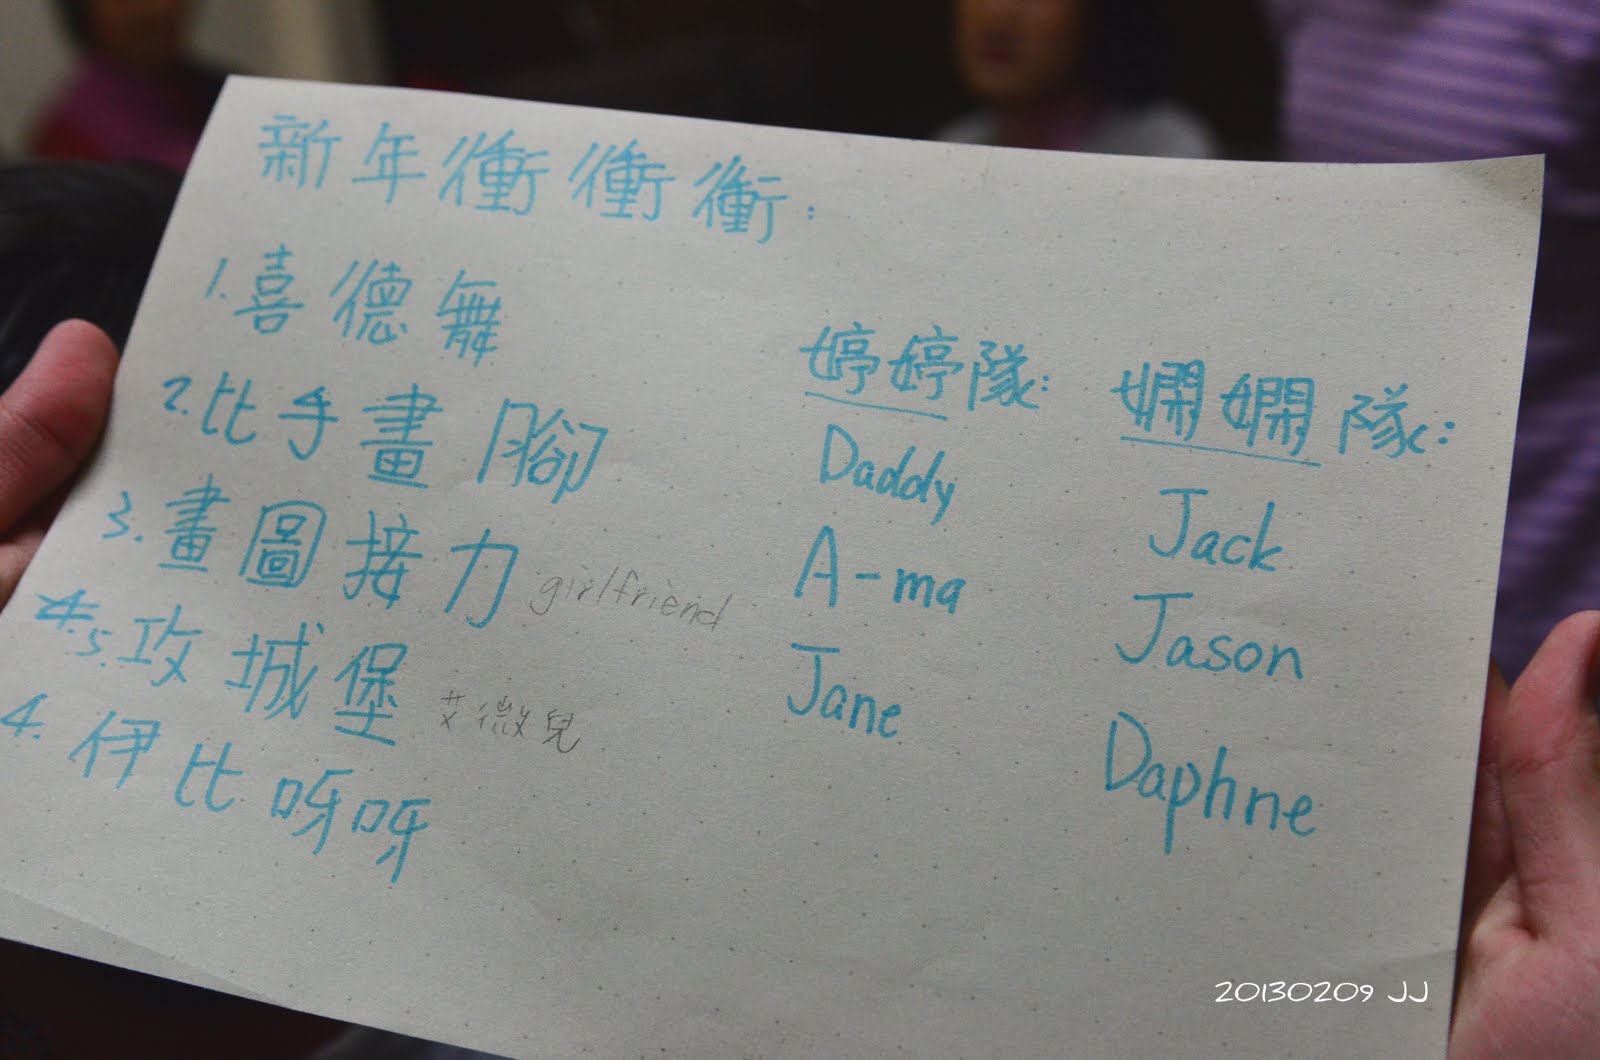 新年衝衝衝:
1.喜德舞
2.比手畫腳
3.畫圖接力 girlfriend
5.攻城堡 艾微兒
4.伊比呀呀
婷婷隊:
Daddy
A-ma
Jane
嫻嫻隊:
Jack
Jason
Daphne
20130209 JJ